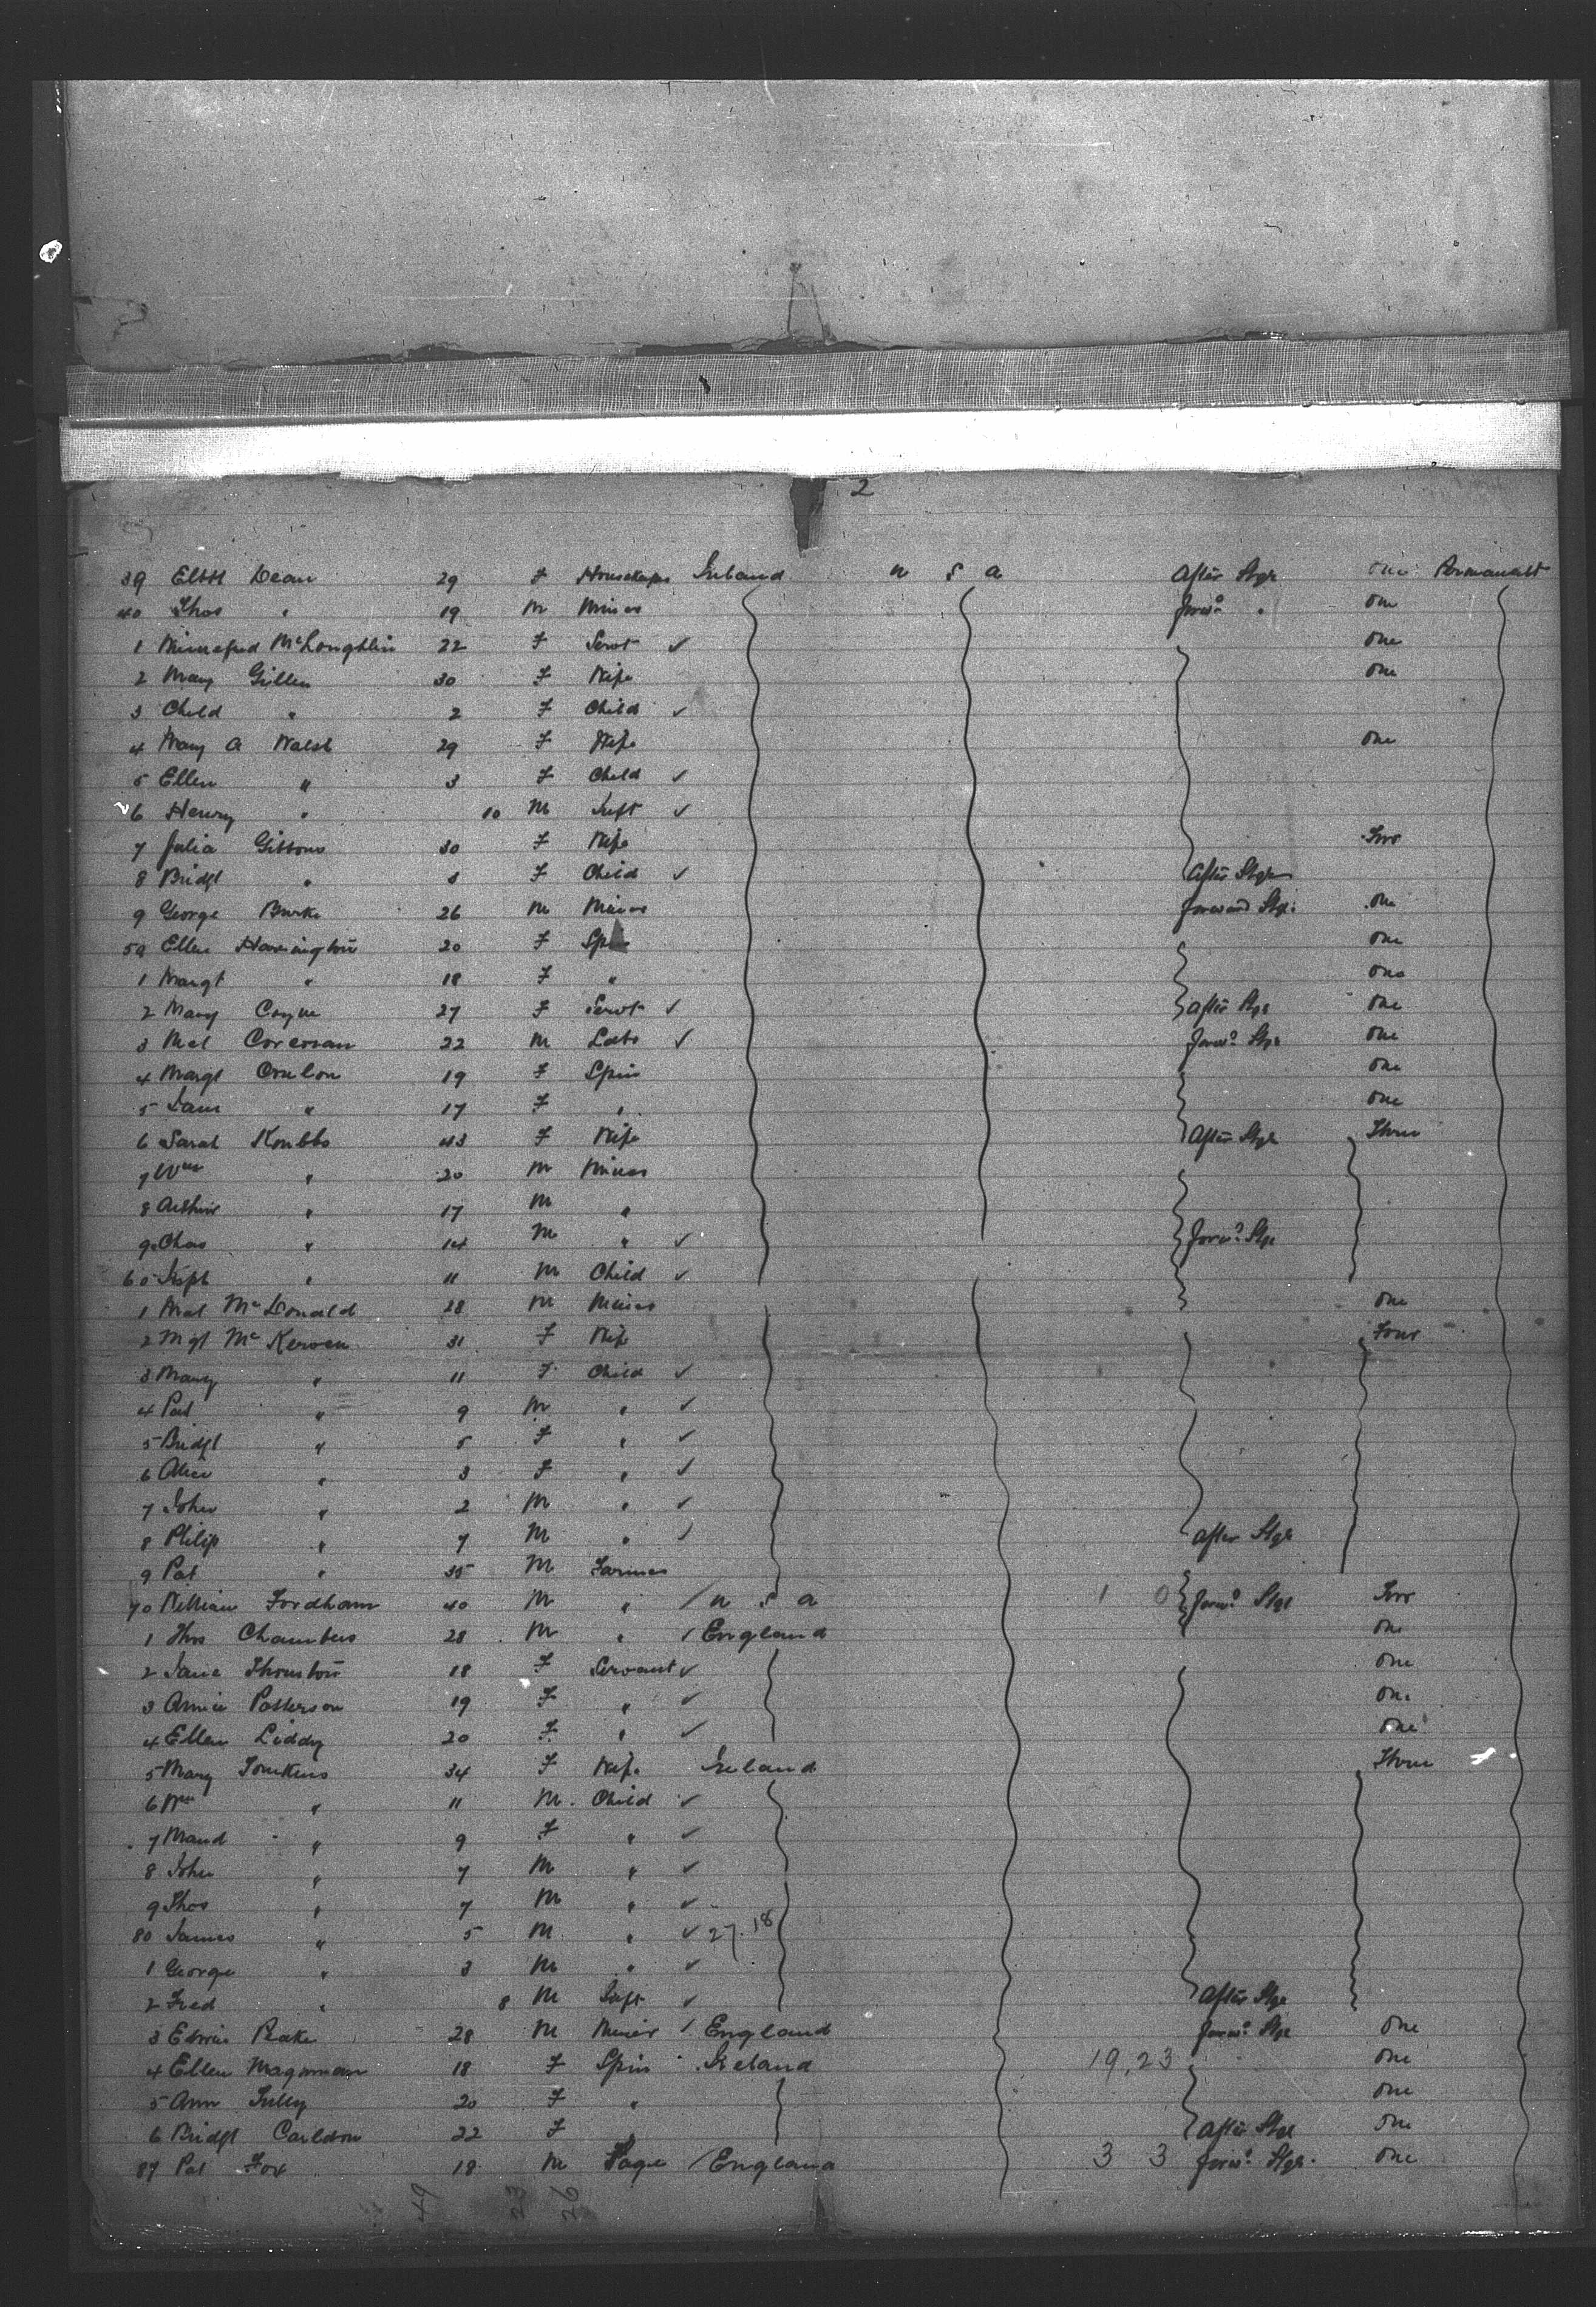 2
39 Elbth Dean 29 F Housekeeper Ireland U S A After Stge One Permanent
40 Thos " 19 M Miner Forwd " One
1 Winnefred McLoughlin 22 F Servt ✓ One
2 Mary Gillen 30 F Wife One
3 Child " 2 F Child ✓
4 Mary A Walsh 29 F Wife One
5 Ellen " 3 F Child ✓
6 Henry " 10 M Inft ✓
7 Julia Gibbons 30 F Wife Two
8 Bridgt " F Child ✓ After Stge
9 George Burke 26 M Miner Forward Stge One
50 Ellen Harrington 20 F One
1 Margt " 18 F " One
2 Mary Coyne 27 F Servt ✓ After Stge One
3 Mcl Corcoran 22 M Labr ✓ Forwd Stge One
4 Margt Conlon 19 F Spin One
5 Jane " 17 F " One
6 Sarah Knibbs 43 F Wife After Stge Three
7 Wm " 20 M Miner
8 Arthur " 17 M "
9 Chas " 14 M " ✓ Forwd Stge
60 Josph " 11 M Child ✓
1 Mcl McDonald 28 M Miner One
2 Mgt McKerven 31 F Wife Four
3 Mary " 11 F Child ✓
4 Pat " 9 M " ✓
5 Bridgt " 5 F " ✓
6 Alice " 3 F " ✓
7 John " 2 M " ✓
8 Philip " 7 M " ✓ After Stge
9 Pat " 35 M Farmer
70 William Fordham 40 M " / U S A 1 0 Forwd Stge Two
1 Thos Chambers 28 M " / England One
2 Jane Thornton 18 F Servant ✓ One
3 Annie Patterson 19 F " ✓ One
4 Ellen Liddy 20 F " ✓ One
5 Mary Tomkins 34 F Wife Ireland Three
6 Wm " 11 M Child ✓
7 Maud " 9 F " ✓
8 John " 7 M " ✓
9 Thos " 7 M " ✓
80 James " 5 M " ✓ 27.18
1 George " 3 M " ✓
2 Fred " 8 M Inft ✓ After Stge
3 Edwin Peake 28 M Miner / England Forwd Stge One
4 Ellen 18 F Spin Ireland 19,23 One
5 Ann Tully 20 F " One
6 Bridgt Carldon 22 F After Stge One
87 Pat Fox 18 M Page / England 3 3 Forwd Stge One
49 23 26